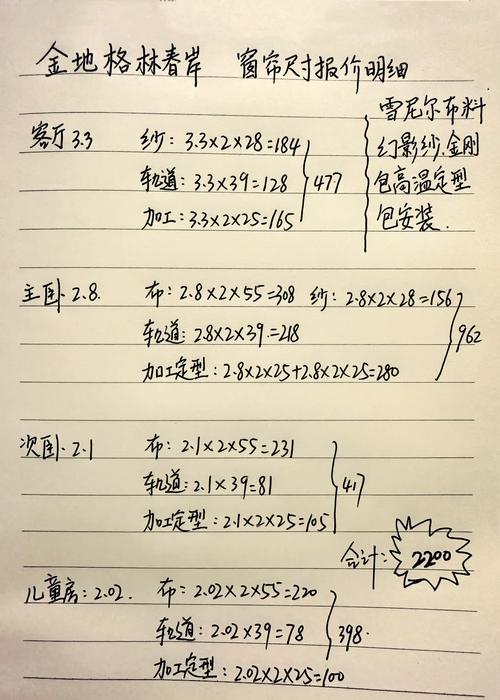 金地格林春岸 窗帘尺寸报价明细
雪尼尔布料
幻影纱.金刚
包高温定型
包安装.
客厅3.3 纱: 3.3×2×28=184
轨道: 3.3×39=128 477
加工: 3.3×2×25=165
主卧·2.8. 布: 2.8×2×55=308 纱: 2.8×2×28=156
轨道: 2.8×2×39=218 962
加工定型: 2.8×2×25+2.8×2×25=280
次卧·2.1 布: 2.1×2×55=231
轨道: 2.1×39=81 417
加工定型: 2.1×2×25=105
合计: 2200
儿童房: 2.02. 布: 2.02×2×55=220
轨道: 2.02×39=78 398.
加工定型: 2.02×2×25=100